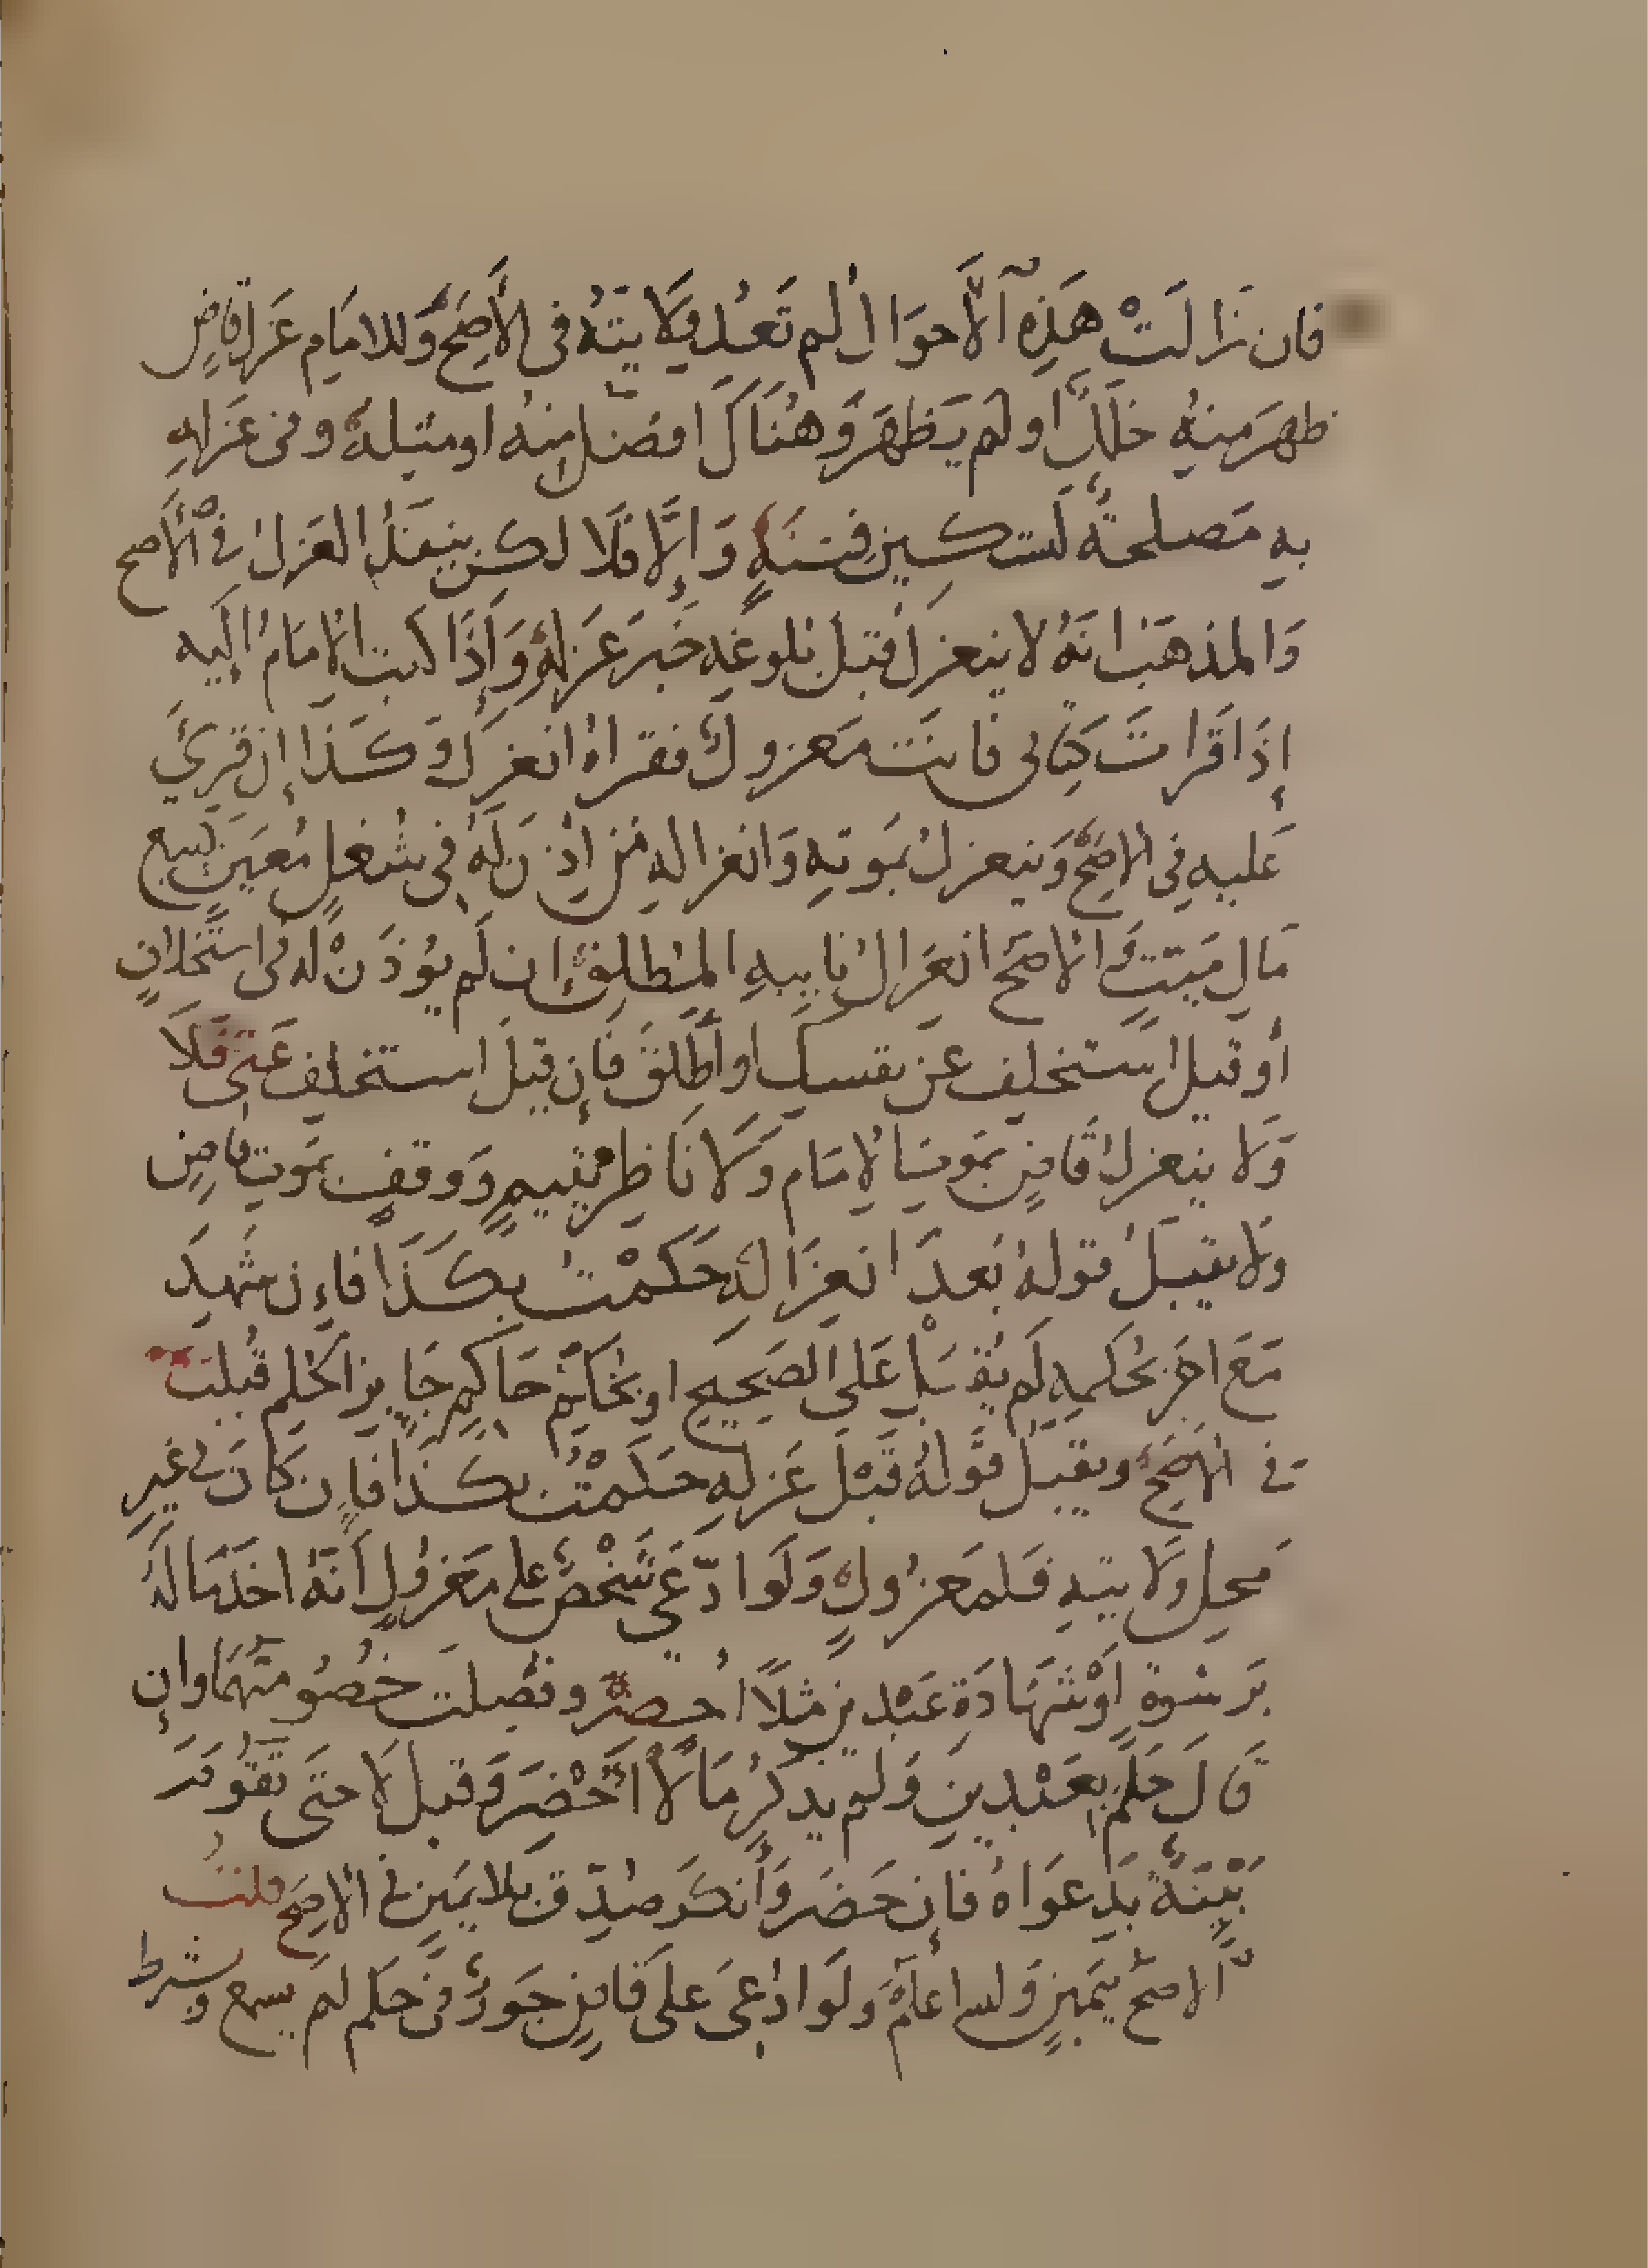 فان زالت هَذِهِ الأحوال لم تَعُد وِلايتهُ في الأصَحّ وللامَام عَزل قاضٍ
ظهرَ منهُ خلَلٌ او لم يَظهَر وَهنَاكَ افضل منهُ او مثله وفى عَزله
به مَصلحةٌ لتسكين فِتنَةٍ وَإلّا فلَا لكن ينفذُ العَزلُ في الأصح
وَالمذهَب انهُ لا ينعزل قبل بلوغه خَبر عَزلهِ وَإذَا كتب الامَامُ إليه
إذَا قرات كتابى فانت مَعزولٌ فقراهُ انعزل وَكَذَا إن قرئَ
عَليه في الاصَحّ وَينعزل بمَوته وَانعزالهِ من اذن لَهُ في شغلٍ مُعَينٍ كبيع
مَال مَيتٍ وَالاصَح انعزَالُ نايبهِ المطلق إن لم يُوذن لهُ فى استخلافٍ
أو قيل استخلف عن نفسك او أطلق فإن قيل استخلف عَنى فَلَا
وَلا ينعزل قاضٍ بموت الامَام وَلَا نَاظر يتيمٍ وَوقفٍ بمَوت قاضٍ
ولا يقبلُ قولهُ بَعدَ انعِزَالهِ حَكمْتُ بكَذَا فاءِن شهِدَ
مَعَ اخَر بحُكمهِ لم يُقبَل عَلى الصَحِيح او بحُكم حَاكمٍ جَايز الحُكم قُبلت
في الاصَحّ ويقبل قَولهُ قَبْل عَزلهِ حَكمْتُ بكذَا فاِن كانَ فى غيرِ
مَحل ولَايتهِ فكمَعزُولٍ وَلَوادّعَى شَخْصٌ على مَعزُولٍ أنهُ اخَذ مَالهُ
برَشوة اوْشهَادَةِ عَبْدين مثلًا اُحضرَ وفُصِلت خصُومتهُمَا وإن
قَالَ حكم بعَبْدينِ وَلم يذكرُ مَالًا اُحْضِرَ وَقيل لَا حتَى تقُومَ
بَيّنَةٌ بدَعوَاهُ فإن حَضَر وَأنكرَ صُدّق بلا يمَينٍ في الاصَح قلت
الاصحّ بيَمينٍ وَالله اعلم وَلَوادعىَ عَلى قاضٍ جَورٌ في حكم لم يسمع وشرط